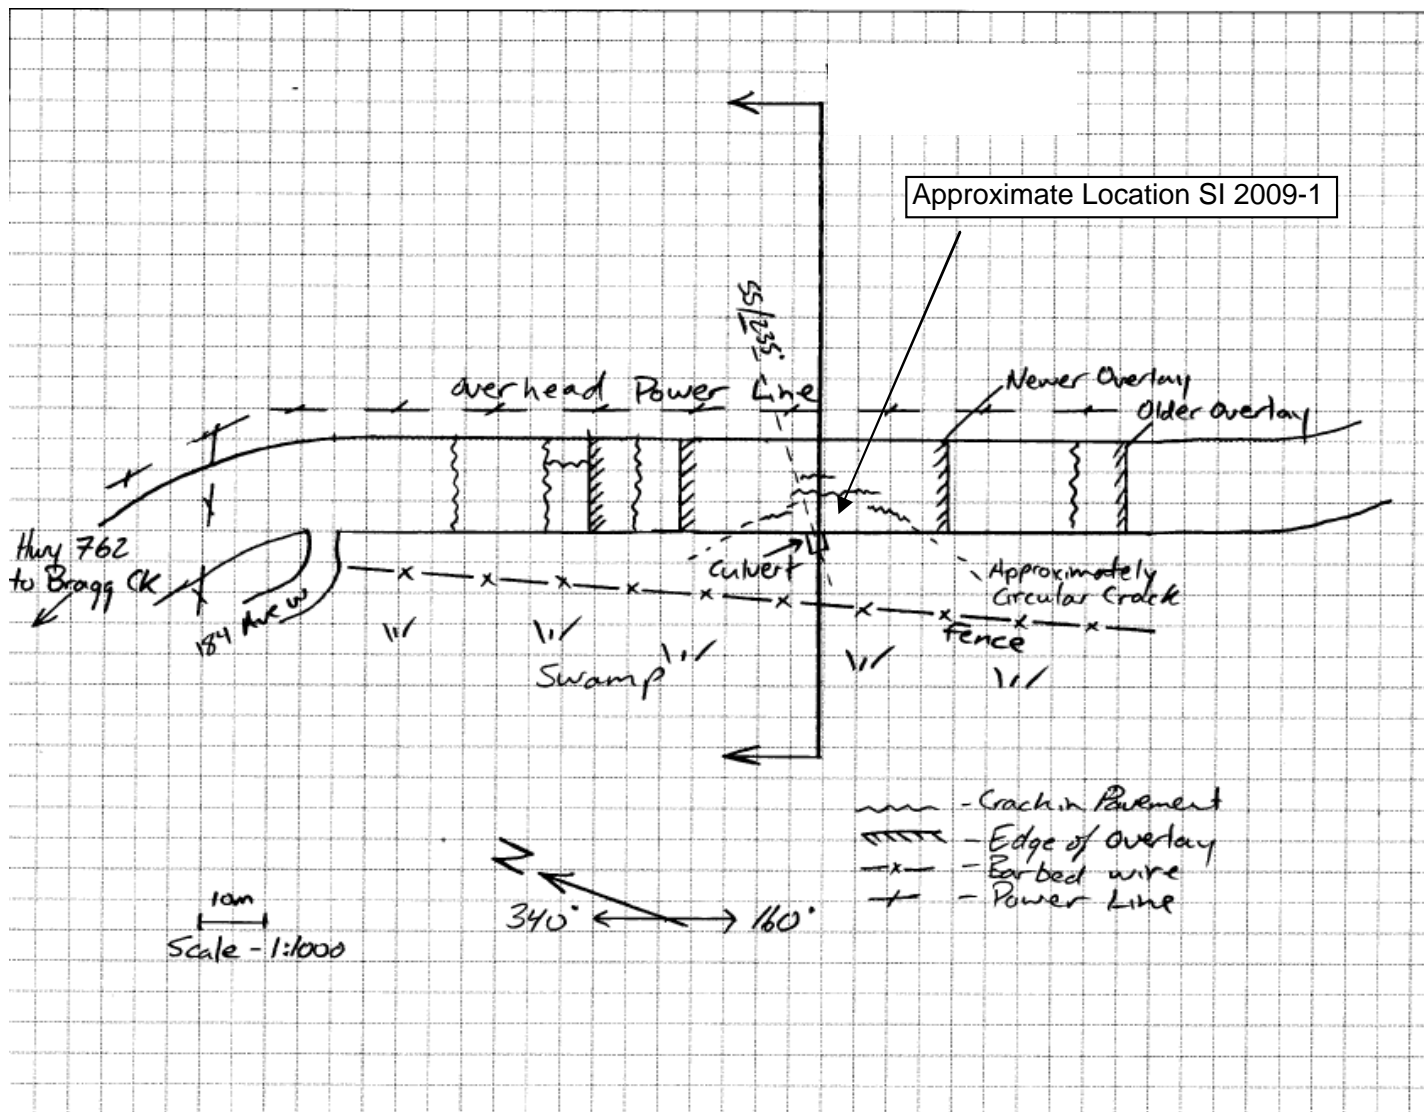 Approximate Location SI 2009-1
55/235°
overhead Power Line
Newer Overlay
Older Overlay
Hwy 762
to Bragg CK
184 Ave W
Culvert
Approximately
Circular Crack
fence
Swamp
- Crack in Pavement
- Edge of Overlay
- Barbed wire
- Power Line
N
340° 160°
10m
Scale - 1:1000